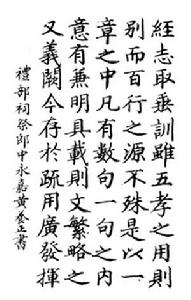 經志取垂訓雖五孝之用則
別而百行之源不殊是以一
章之中凡有數句一句之內
意有兼明具載則文繁略之
又義闕今存於疏用廣發揮
禮部祠祭郎中永嘉黃養正書